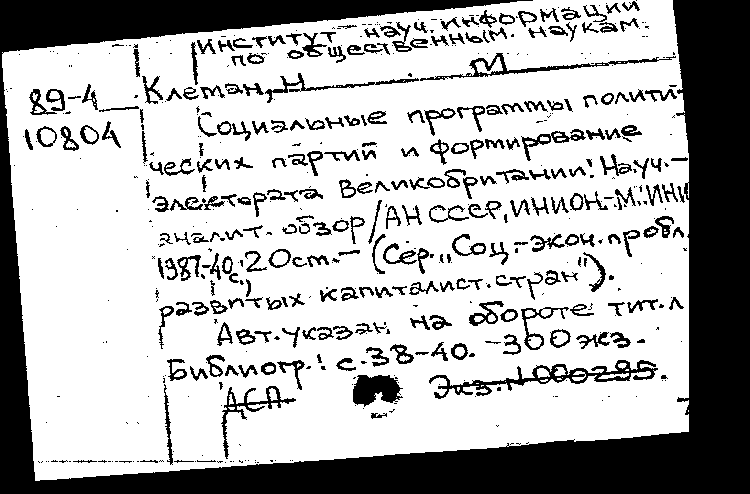 Институт науч. информации
по общественным. наукам.
89-4
10804
Клеман, Н
Социальные программы полити-
ческих партий и формирование
электората Великобритании: Науч.-
аналит. обзор/АН СССР, ИНИОН.-М.: ИНИ
1987.-40 с., 20 см.- (Сер. "Соц.-экон. пробл.
развитых капиталист. стран").
Авт. указан на обороте тит. л
Библиогр.: с. 38-40. -300 экз.
ДСП Экз. N 000295.